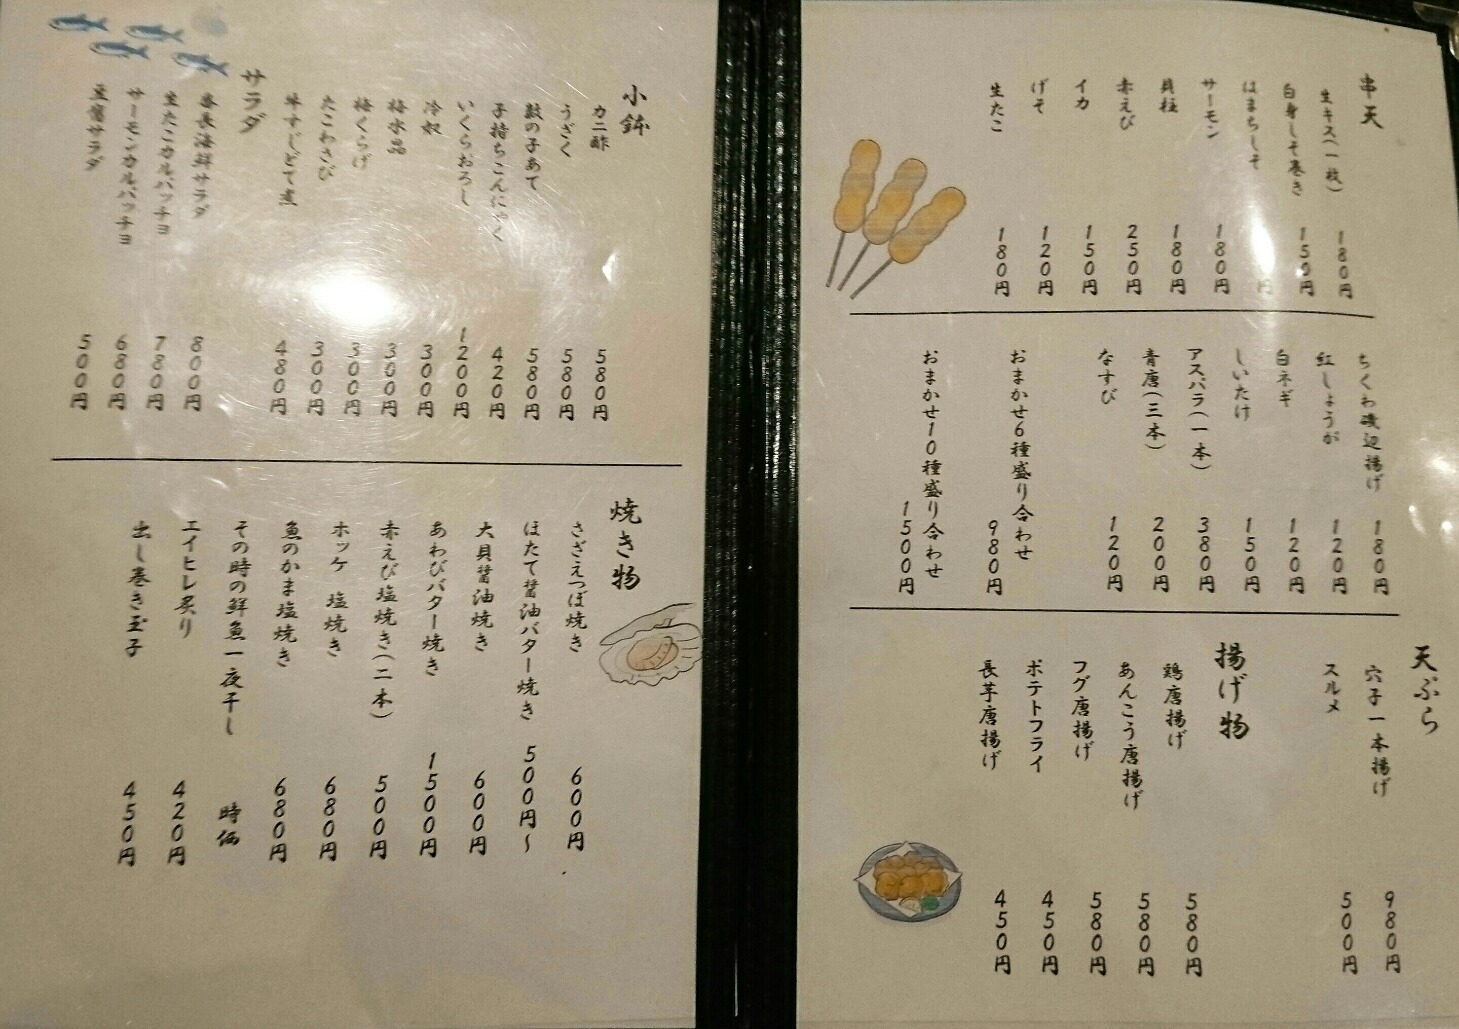 串天
生キス(一枚) 180円
白身しそ巻き 150円
はまちしそ 円
サーモン 180円
貝柱 180円
赤えび 250円
イカ 150円
げそ 120円
生たこ 180円
ちくわ磯辺揚げ 180円
紅しょうが 120円
白ネギ 120円
しいたけ 150円
アスパラ(一本) 380円
青唐(三本) 200円
なすび 120円
おまかせ6種盛り合わせ 980円
おまかせ10種盛り合わせ 1500円
天ぷら
穴子一本揚げ 980円
スルメ 500円
揚げ物
鶏唐揚げ 580円
あんこう唐揚げ 580円
フグ唐揚げ 580円
ポテトフライ 450円
長芋唐揚げ 450円
小鉢
カニ酢 580円
うざく 580円
数の子あて 580円
子持ちこんにゃく 420円
いくらおろし 1200円
冷奴 300円
梅水晶 300円
梅くらげ 300円
たこわさび 300円
牛すじどて煮 480円
サラダ
番長海鮮サラダ 800円
生たこカルパッチョ 780円
サーモンカルパッチョ 680円
豆腐サラダ 500円
焼き物
さざえつぼ焼き 600円
ほたて醤油バター焼き 500円~
大貝醤油焼き 600円
あわびバター焼き 1500円
赤えび塩焼き(二本) 500円
ホッケ 塩焼き 680円
魚のかま塩焼き 680円
その時の鮮魚一夜干し 時価
エイヒレ炙り 420円
出し巻き玉子 450円